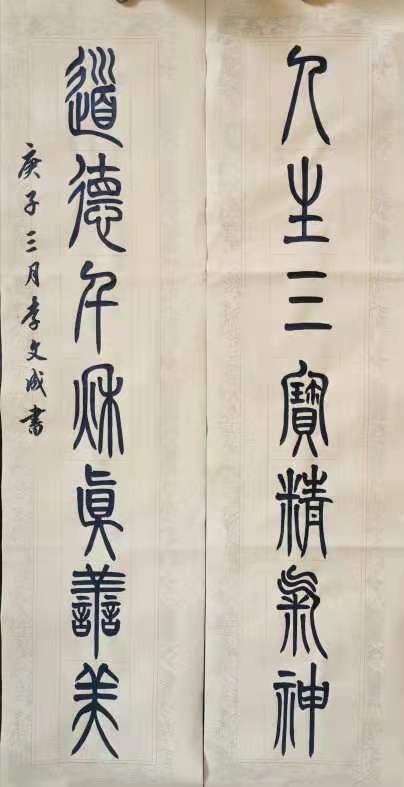 人生三寶精氣神
道德千秋眞譱美
庚子三月李文成書